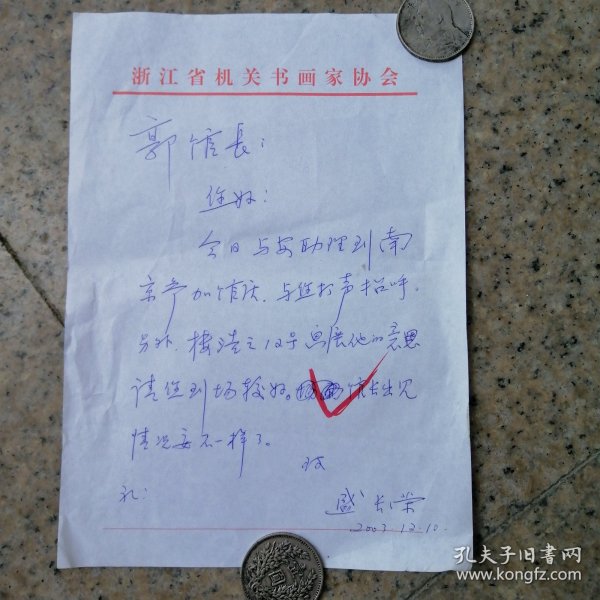 浙江省机关书画家协会
郭馆長：
您好：
今日与安助理到南
京参加馆庆，与您打声招呼。
另外，楼浩之12号画展他的意思
请您到场较好。馆长出见
情况要不一样了。
致
礼：
盛长荣
2003.12.10.
孔夫子旧书网
www.kongfz.com